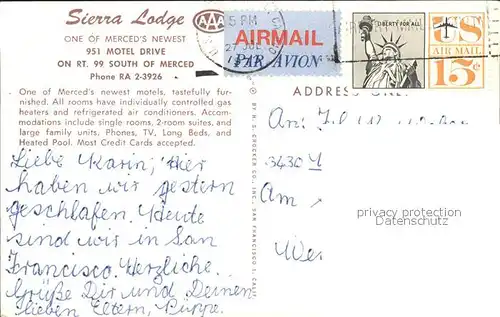 Sierra Lodge AAA
ONE OF MERCED'S NEWEST
951 MOTEL DRIVE
ON RT. 99 SOUTH OF MERCED
Phone RA 2-3926
One of Merced's newest motels, tastefully fur-
nished. All rooms have individually controlled gas
heaters and refrigerated air conditioners. Accom-
modations include single rooms, 2-room suites, and
large family units. Phones, TV, Long Beds, and
Heated Pool. Most Credit Cards accepted.
Liebe Karin, Hier
haben wir gestern
geschlafen. Heute
sind wir in San
Francisco. Herzliche
Grüße Dir und Deinen
lieben Eltern, Puppe.
5 PM
27 JUL
AIRMAIL
PAR AVION
LIBERTY FOR ALL
US
AIR MAIL
15¢
ADDRESS
An:
3430
Am
Wes
privacy protection
oldthing.com